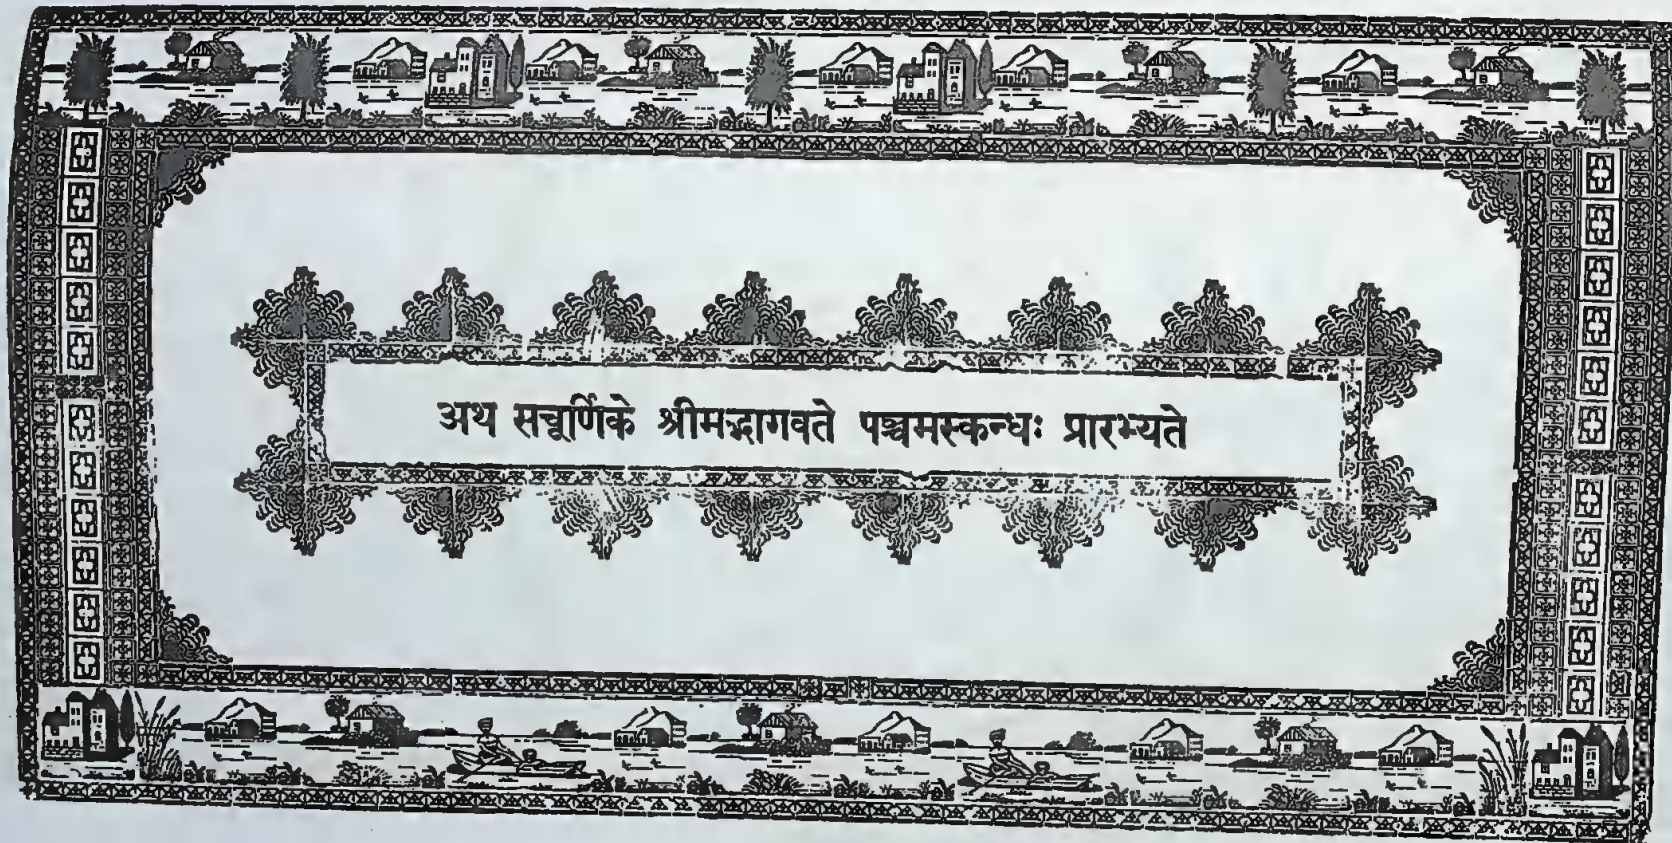 अथ सचूर्णिके श्रीमद्भागवते पञ्चमस्कन्धः प्रारभ्यते